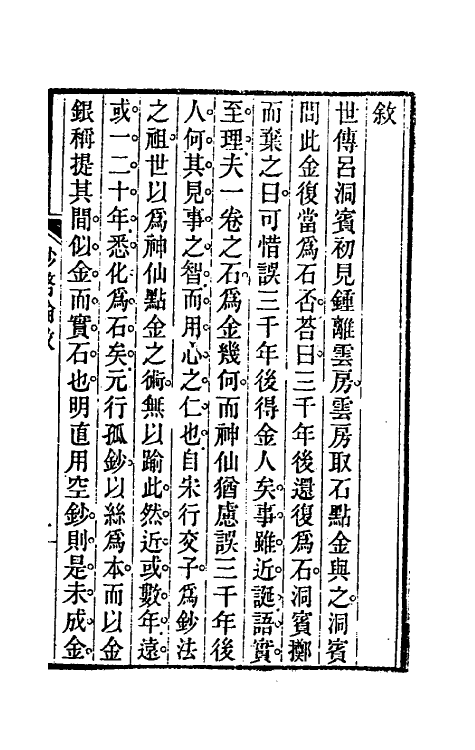 敘
世傳呂洞賓初見鍾離雲房。雲房取石點金與之。洞賓
問此金復當爲石否。荅曰。三千年後還復爲石。洞賓擲
而棄之曰。可惜誤三千年後得金人矣。事雖近誕。語實
至理。夫一卷之石。爲金幾何。而神仙猶慮誤三千年後
人。何其見事之智。而用心之仁也。自宋行交子。爲鈔法
之祖。世以爲神仙點金之術。無以踰此。然近或數年。遠
或一二十年。悉化爲石矣。元行孤鈔以絲爲本。而以金
銀稱提其間。似金而實石也。明直用空鈔。則是未成金。
鈔幣論敘
一